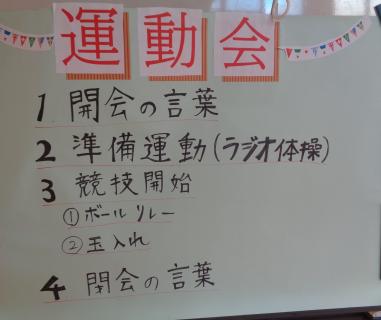 運動会
1 開会の言葉
2 準備運動(ラジオ体操)
3 競技開始
①ボールリレー
②玉入れ
4 閉会の言葉